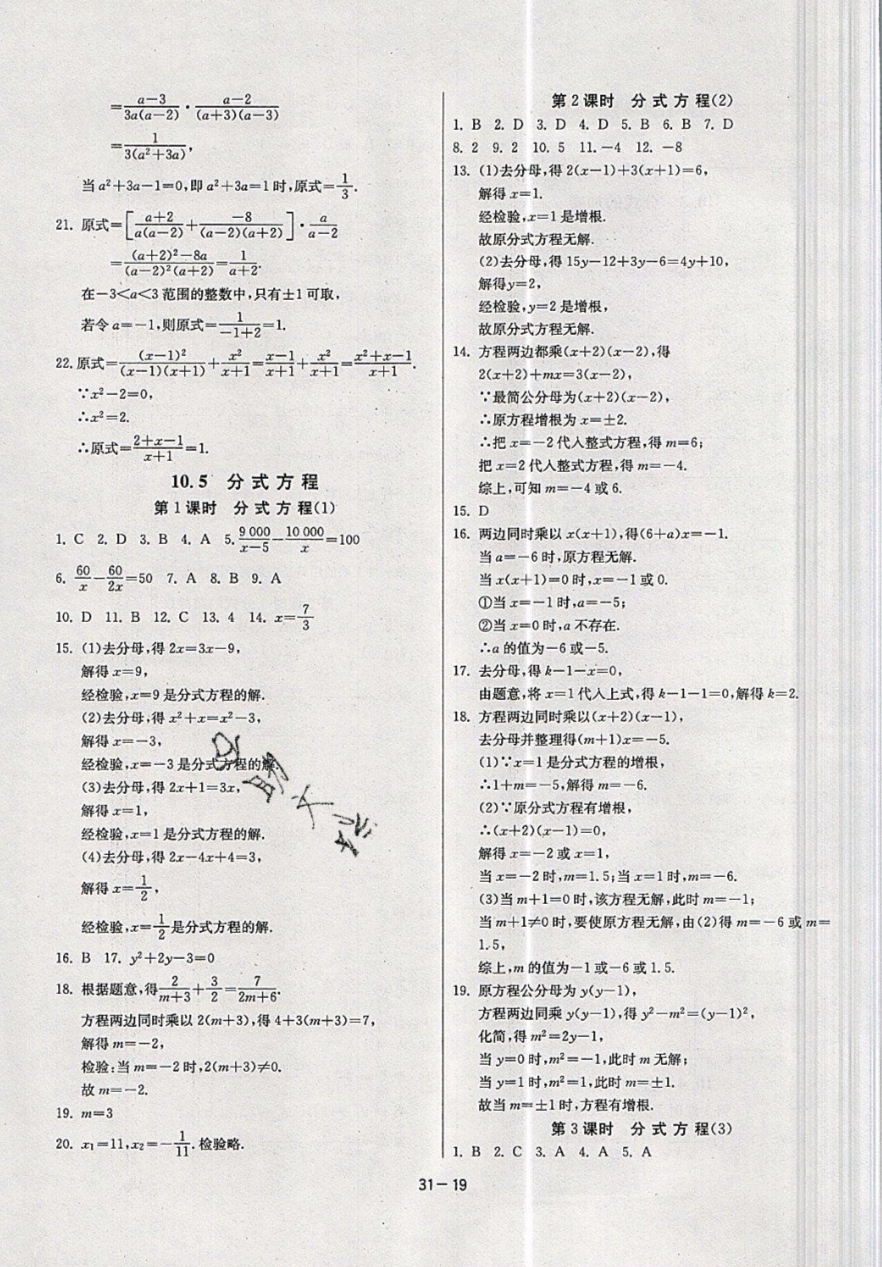 =(a-3)/(3a(a-2))·(a-2)/((a+3)(a-3))
=1/(3(a²+3a)),
当a²+3a-1=0,即a²+3a=1时,原式=1/3.
21. 原式=[(a+2)/(a(a-2))+(-8)/((a-2)(a+2))]·a/(a-2)
=((a+2)²-8a)/((a-2)²(a+2))=1/(a+2).
在-3<a<3范围的整数中,只有±1可取,
若令a=-1,则原式=1/(-1+2)=1.
22. 原式=(x-1)²/((x-1)(x+1))+x²/(x+1)=(x-1)/(x+1)+x²/(x+1)=(x²+x-1)/(x+1).
∵x²-2=0,
∴x²=2.
∴原式=(2+x-1)/(x+1)=1.
10.5 分式方程
第1课时 分式方程(1)
1. C 2. D 3. B 4. A 5. 9 000/(x-5)-10 000/x=100
6. 60/x-60/2x=50 7. A 8. B 9. A
10. D 11. B 12. C 13. 4 14. x=7/3
15. (1)去分母,得2x=3x-9,
解得x=9,
经检验,x=9是分式方程的解.
(2)去分母,得x²+x=x²-3,
解得x=-3,
经检验,x=-3是分式方程的解.
(3)去分母,得2x+1=3x,
解得x=1,
经检验,x=1是分式方程的解.
(4)去分母,得2x-4x+4=3,
解得x=1/2,
经检验,x=1/2是分式方程的解.
16. B 17. y²+2y-3=0
18. 根据题意,得2/(m+3)+3/2=7/(2m+6).
方程两边同时乘以2(m+3),得4+3(m+3)=7,
解得m=-2,
检验:当m=-2时,2(m+3)≠0.
故m=-2.
19. m=3
20. x₁=11,x₂=-1/11.检验略.
第2课时 分式方程(2)
1. B 2. D 3. D 4. D 5. B 6. B 7. D
8. 2 9. 2 10. 5 11. -4 12. -8
13. (1)去分母,得2(x-1)+3(x+1)=6,
解得x=1.
经检验,x=1是增根.
故原分式方程无解.
(2)去分母,得15y-12+3y-6=4y+10,
解得y=2,
经检验,y=2是增根,
故原分式方程无解.
14. 方程两边都乘(x+2)(x-2),得
2(x+2)+mx=3(x-2),
∵最简公分母为(x+2)(x-2),
∴原方程增根为x=±2.
∴把x=-2代入整式方程,得m=6;
把x=2代入整式方程,得m=-4.
综上,可知m=-4或6.
15. D
16. 两边同时乘以x(x+1),得(6+a)x=-1.
当a=-6时,原方程无解.
当x(x+1)=0时,x=-1或0.
①当x=-1时,a=-5;
②当x=0时,a不存在.
∴a的值为-6或-5.
17. 去分母,得k-1-x=0,
由题意,将x=1代入上式,得k-1-1=0,解得k=2.
18. 方程两边同时乘以(x+2)(x-1),
去分母并整理得(m+1)x=-5.
(1)∵x=1是分式方程的增根,
∴1+m=-5,解得m=-6.
(2)∵原分式方程有增根,
∴(x+2)(x-1)=0,
解得x=-2或x=1,
当x=-2时,m=1.5;当x=1时,m=-6.
(3)当m+1=0时,该方程无解,此时m=-1;
当m+1≠0时,要使原方程无解,由(2)得m=-6或m=
1.5,
综上,m的值为-1或-6或1.5.
19. 原方程公分母为y(y-1),
方程两边同乘y(y-1),得y²-m²=(y-1)²,
化简,得m²=2y-1,
当y=0时,m²=-1,此时m无解;
当y=1时,m²=1,此时m=±1.
故当m=±1时,方程有增根.
第3课时 分式方程(3)
1. B 2. C 3. A 4. A 5. A
31-19